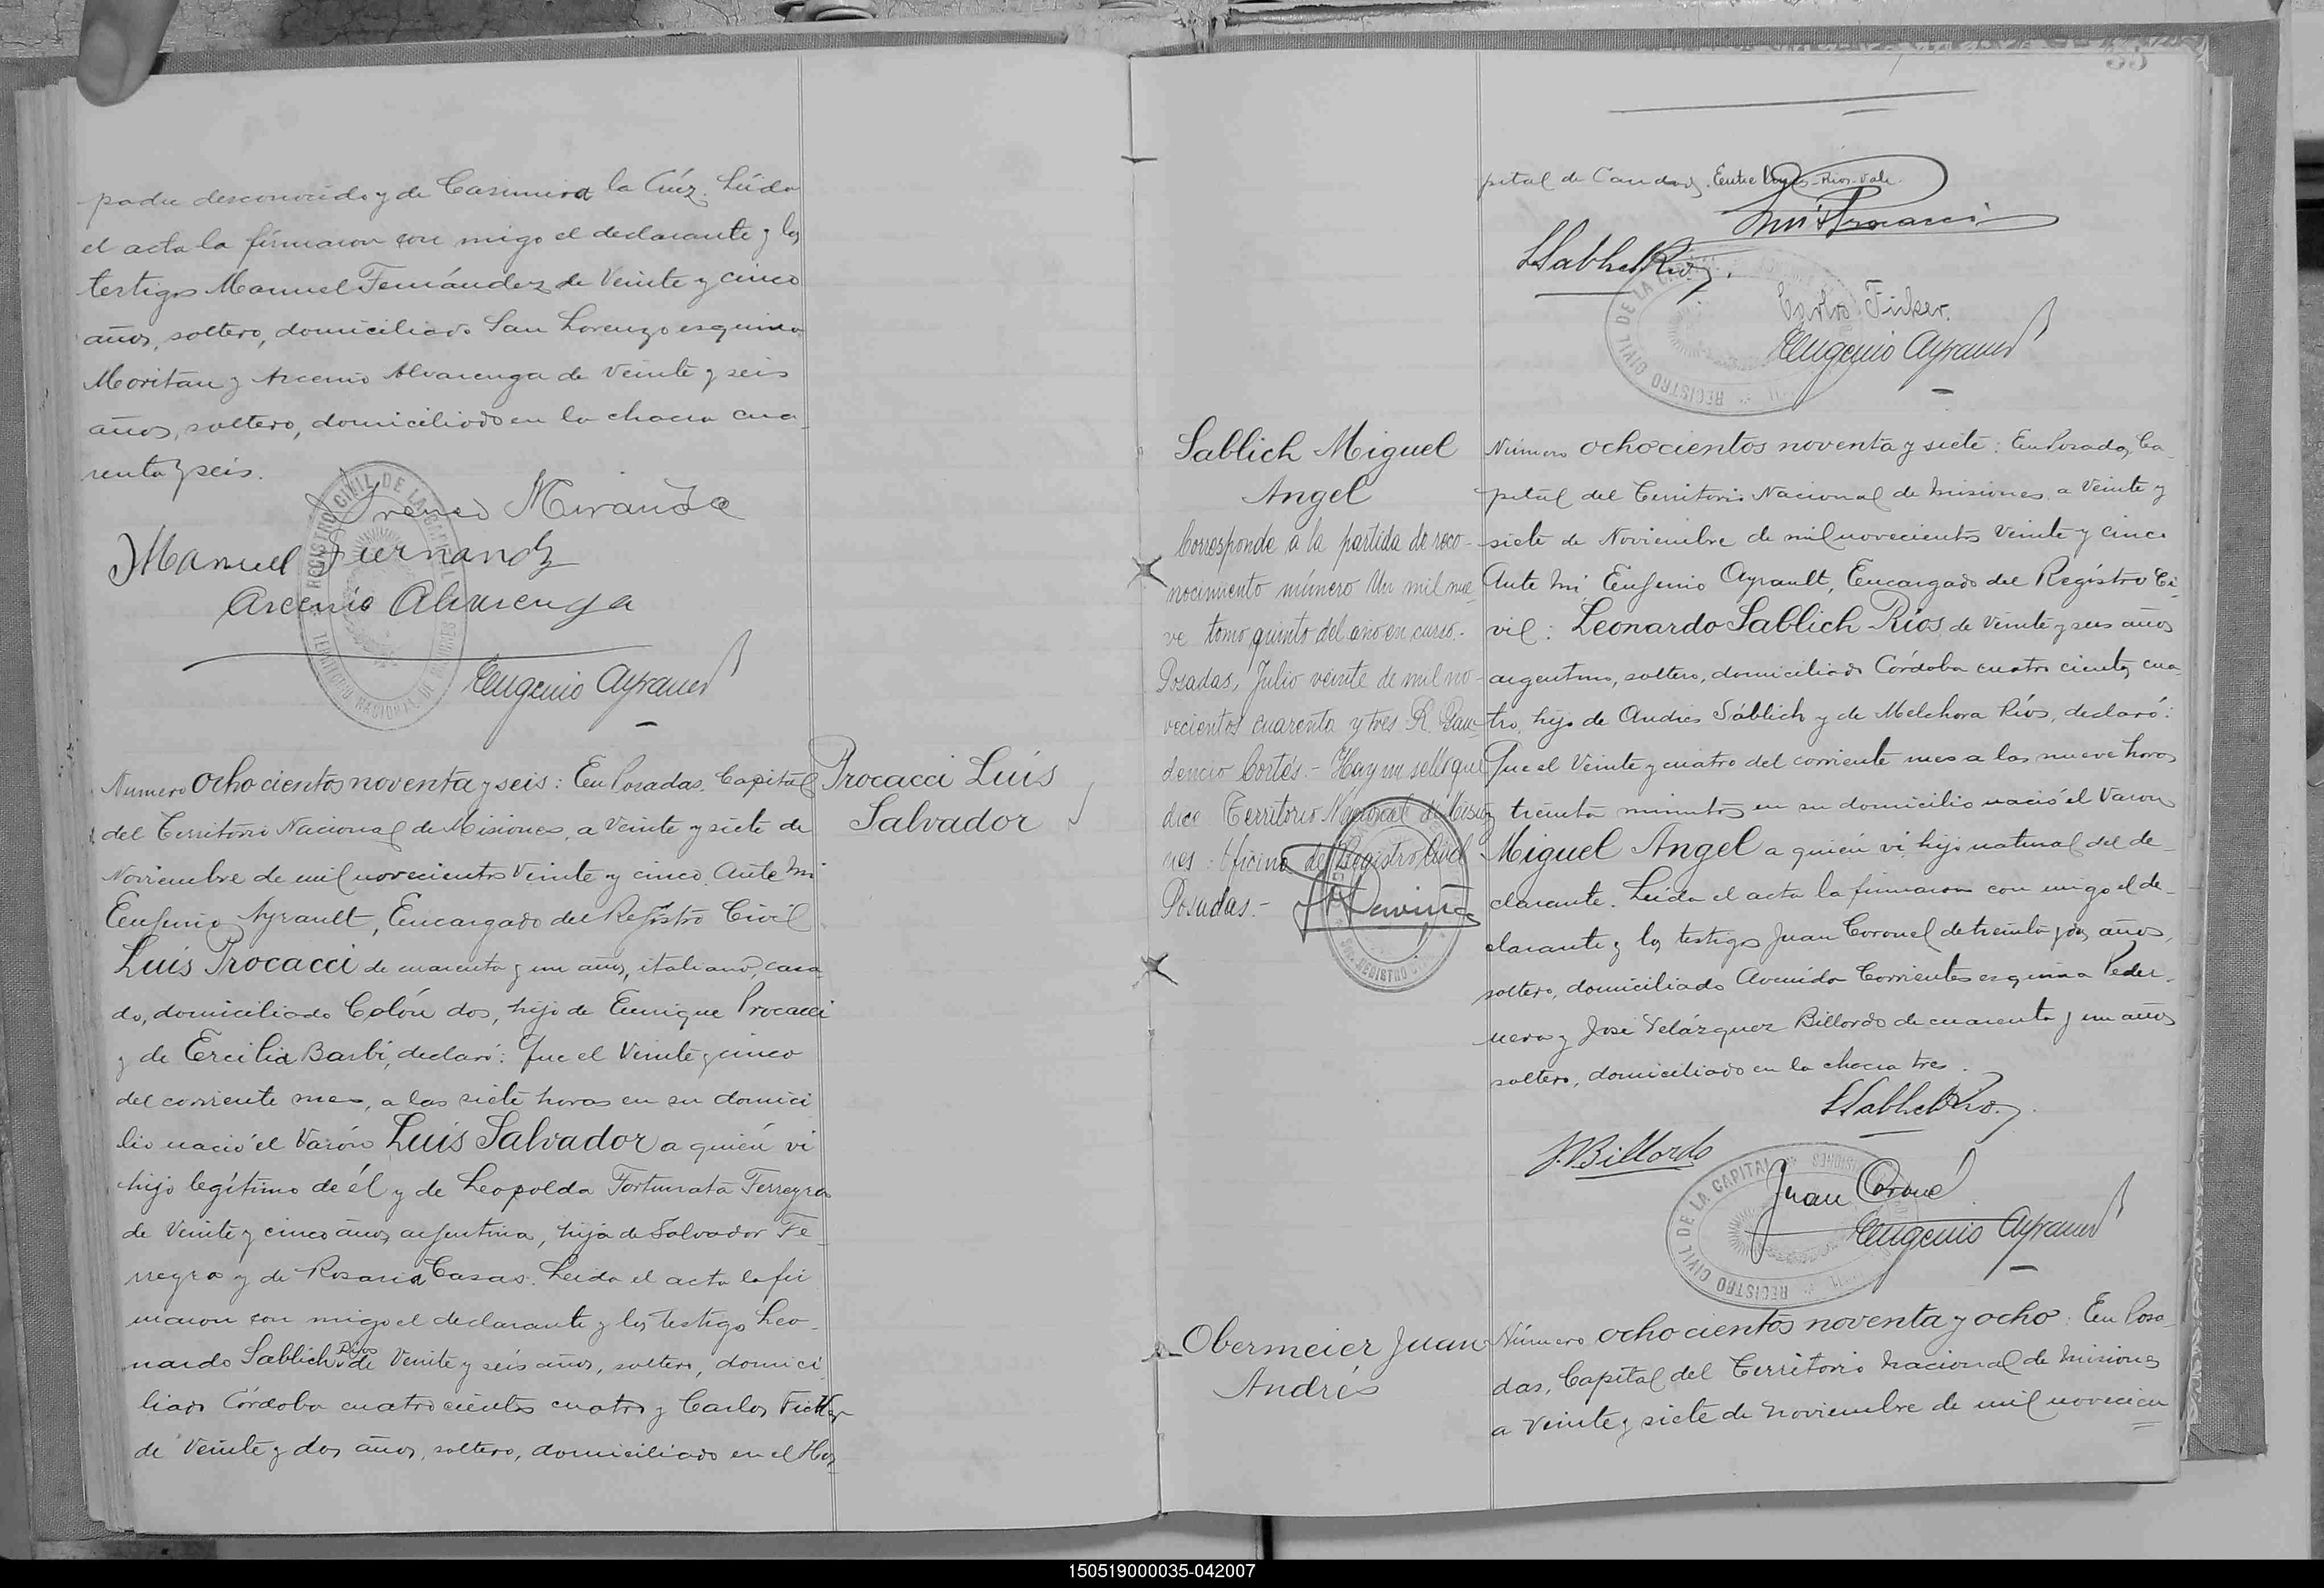 padre desconocido y de Casimira la Cruz. Leída
el acta la firmaron con migo el declarante y los
testigos Manuel Fernández de Veinte y cinco
años, soltero, domiciliado San Lorenzo esquina
Moritan y Arcenio Alvarenga de Veinte y seis
años, soltero, domiciliado en la chacra cua-
renta y seis.
Ireneo Miranda
Manuel Fernandz
Arcenio Alvarenga
Eugenio Ayrault
REGISTRO CIVIL DE LA CAPITAL
TERRITORIO NACIONAL DE MISIONES
Procacci Luis
Salvador
Numero ochocientos noventa y seis: En Posadas, Capital
del Territorio Nacional de Misiones, a Veinte y siete de
Noviembre de mil novecientos Veinte y cinco. Ante Mi
Eugenio Ayrault, Encargado del Registro Civil
Luis Procacci de cuarenta y un años, italiano, casa-
do, domiciliado Colón dos, hijo de Enrique Procacci
y de Ercilia Barbi, declaró: Que el Veinte y cinco
del corriente mes, a las siete horas en su domici
lio nació el Varón Luis Salvador a quién vi
hijo legítimo de él y de Leopolda Fortunata Ferreyra
de Veinte y cinco años, argentina, hija de Salvador Fe-
rreyra y de Rosaria Casas. Leida el acta la fir
maron con migo el declarante y los testigos Leo-
nardo Sablich Rios de Veinte y seis años, soltero, domici
liado Córdoba cuatrocientos cuatro y Carlos Ficker
de Veinte y dos años, soltero, domiciliado en el Hos-
pital de Caridad. Entre líneas-Rios-Vale.
Luis Procacci
LSablichRios.
Carlos Ficker.
Eugenio Ayrault
REGISTRO CIVIL DE LA CAPITAL
Sablich Miguel
Angel
Corresponde a la partida de reco-
nocimiento número Un mil nue-
ve tomo quinto del año en curso.-
Posadas, Julio veinte de mil no-
vecientos cuarenta y tres R. Gau-
dencio Cortés.- Hay un sello que
dice Territorio Nacional de Misio-
nes: Oficina del Registro Civil
Posadas.-
Número ochocientos noventa y siete: En Posadas, Ca-
pital del Territorio Nacional de Misiones, a Veinte y
siete de Noviembre de mil novecientos Veinte y cinco
Ante Mi, Eugenio Ayrault, Encargado del Registro Ci-
vil: Leonardo Sablich Ríos, de Veinte y seis años
argentino, soltero, domiciliado Córdoba cuatrocientos cua-
tro, hijo de Andrés Sáblich y de Melchora Ríos, declaró:
Que el Veinte y cuatro del corriente mes a las nueve horas
y treinta minutos en su domicilio nació el Varón
Miguel Angel a quién vi, hijo natural del de-
clarante. Leida el acta la firmaron con migo el de-
clarante y los testigos Juan Coronel de treinta y dos años,
soltero, domiciliado Avenida Corrientes esquina Peder-
nera y José Velázquez Billordo de cuarenta y un años
soltero, domiciliado en la chacra tres.
LSablichRios.
J.Billordo
Juan Coronel
Eugenio Ayrault
REGISTRO CIVIL DE LA CAPITAL
Obermeier Juan
Andrés
Número ochocientos noventa y ocho: En Posa-
das, Capital del Territorio Nacional de Misiones
a Veinte y siete de Noviembre de mil novecien
150519000035-042007